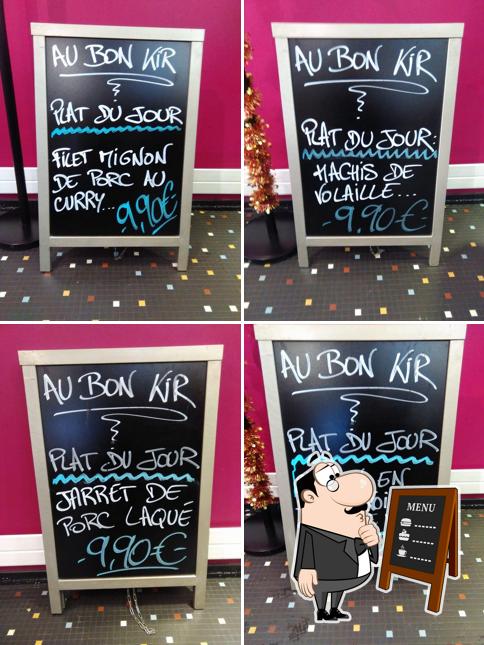 AU BON KIR
PLAT DU JOUR
FILET MIGNON
DE PORC AU
CURRY... 9,90€
AU BON KIR
PLAT DU JOUR:
HACHIS DE
VOLAILLE...
-9,90€-
AU BON KIR
PLAT DU JOUR
JARRET DE
PORC LAQUÉ
-9,90€-
AU BON KIR
PLAT DU JOUR
EN
MENU